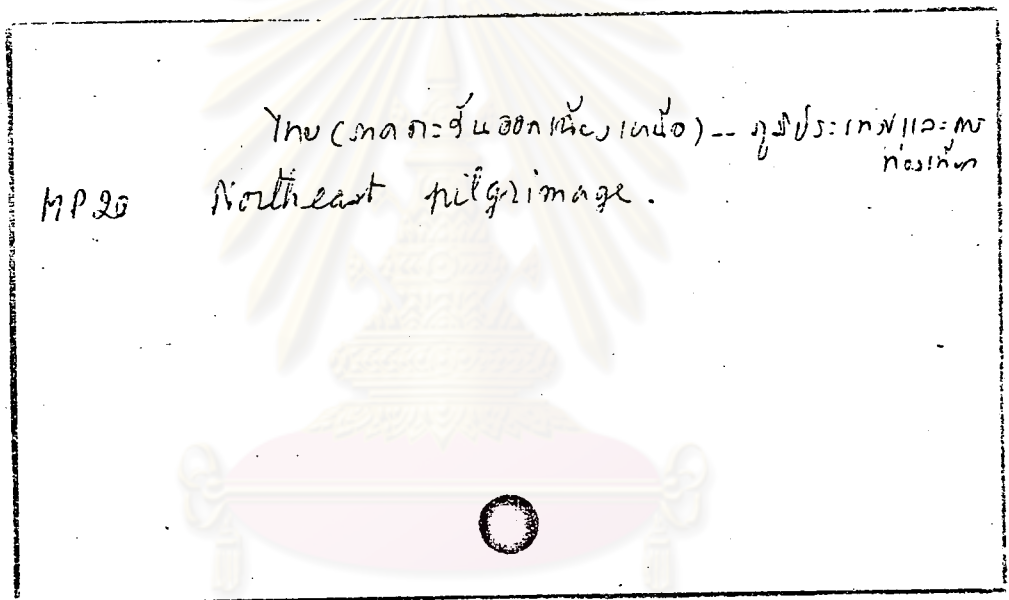 ไทย (ภาคตะวันออกเฉียงเหนือ) -- ภูมิประเทศและการ
ท่องเที่ยว
MP20 Northeast pilgrimage.